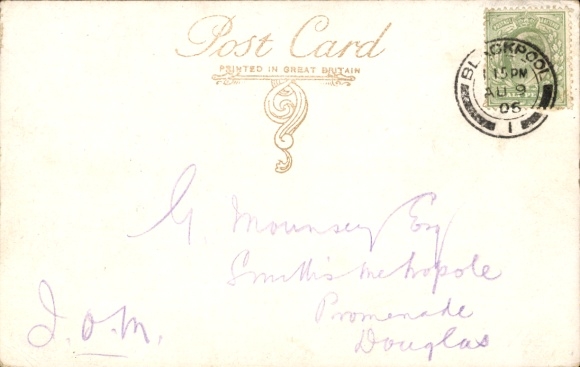 Post Card
PRINTED IN GREAT BRITAIN
BLACKPOOL
1 15 PM
AU 9
06
1
G. Mounsey Esq
Smith's Metropole
Promenade
Douglas
I.O.M.